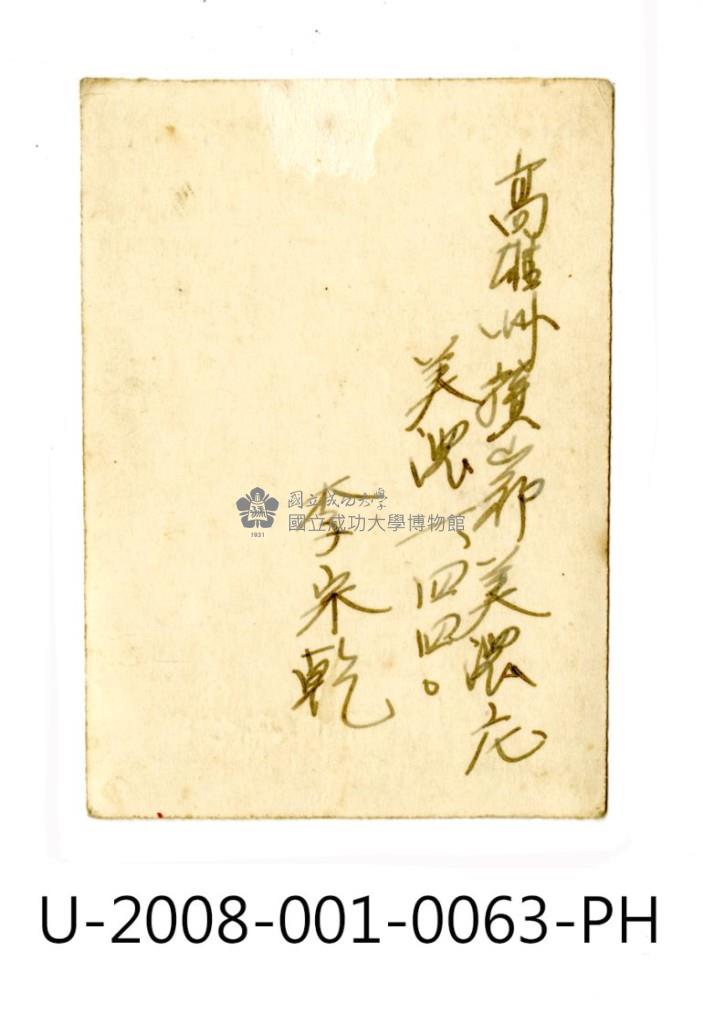 高雄州旗山郡美濃庄
美濃一、四四。
李宋乾
國立成功大學
國立成功大學博物館
1931
U-2008-001-0063-PH